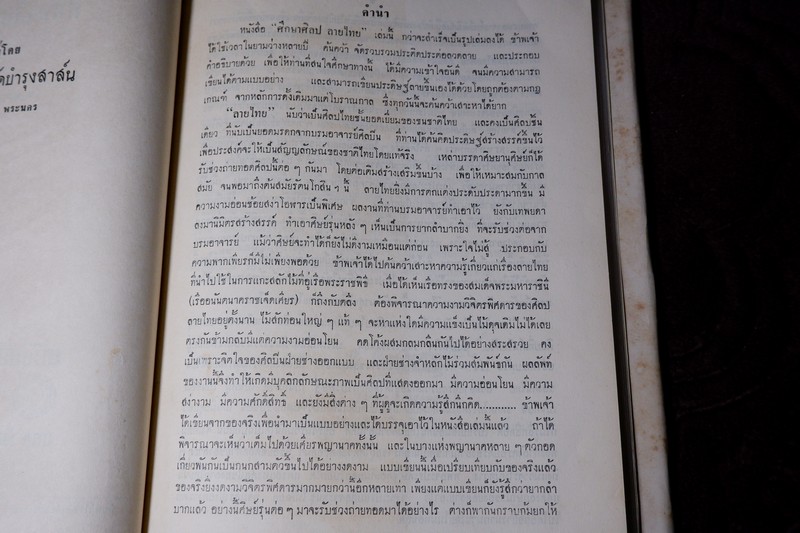 ์โดย
ดำรุงสาส์น
พระนคร
คำนำ
หนังสือ "ศึกษาศิลป ลายไทย" เล่มนี้ กว่าจะสำเร็จเป็นรูปเล่มลงได้ ข้าพเจ้า
ได้ใช้เวลาในยามว่างหลายปี ค้นคว้า จัดรวบรวมประดิดประต่อลวดลาย และประกอบ
คำอธิบายด้วย เพื่อให้ท่านที่สนใจศึกษาทางนี้ ได้มีความเข้าใจอันดี จนมีความสามารถ
เขียนได้ตามแบบอย่าง และสามารถเขียนประดิษฐ์ลายขึ้นเองได้ด้วยโดยถูกต้องตามกฎ
เกณฑ์ จากหลักการดั้งเดิมมาแต่โบราณกาล ซึ่งทุกวันนี้จะค้นคว้าเสาะหาได้ยาก
"ลายไทย" นับว่าเป็นศิลปไทยชั้นยอดเยี่ยมของชนชาติไทย และคงเป็นศิลปชิ้น
เดียว ที่นับเป็นยอดมรดกจากบรมอาจารย์ศิลปิน ที่ท่านได้ค้นคิดประดิษฐ์สร้างสรรค์ขึ้นไว้
เพื่อประสงค์จะให้เป็นสัญญลักษณ์ของชาติไทยโดยแท้จริง เหล่าบรรดาศิษยานุศิษย์ก็ได้
รับช่วงถ่ายทอดศิลปนี้ต่อ ๆ กันมา โดยต่อเติมสร้างเสริมขึ้นบ้าง เพื่อให้เหมาะสมกับกาล
สมัย จนพอมาถึงต้นสมัยรัตนโกสินทร์ นี้ ลายไทยยิ่งมีการตกแต่งประดับประดามากขึ้น มี
ความงามอ่อนช้อยสง่าโอฬารเป็นพิเศษ ผลงานที่ท่านบรมอาจารย์ทำเอาไว้ ยังกับเทพยดา
ลงมานิมิตรสร้างสรรค์ ทำเอาศิษย์รุ่นหลัง ๆ เห็นเป็นการยากลำบากยิ่ง ที่จะรับช่วงต่อจาก
บรมอาจารย์ แม้ว่าศิษย์จะทำได้ก็ยังไม่ดีงามเหมือนแต่ก่อน เพราะใจไม่สู้ ประกอบกับ
ความพากเพียรก็มีไม่เพียงพอด้วย ข้าพเจ้าได้ไปค้นคว้าเสาะหาความรู้เกี่ยวแก่เรื่องลายไทย
ที่นำไปใช้ในการแกะสลักไม้ที่อู่เรือพระราชพิธี เมื่อได้เห็นเรือทรงของสมเด็จพระมหาราชินี
(เรืออนันตนาคราชเจ็ดเศียร) ก็ถึงกับตลึง ต้องพิจารณาความงามวิจิตรพิศดารของศิลป
ลายไทยอยู่ตั้งนาน ไม้สักท่อนใหญ่ ๆ แท้ ๆ จะหาแห่งใดมีความแข็งเป็นไม้ดุจเดิมไม่ได้เลย
ตรงกันข้ามกลับมีแต่ความงามอ่อนโยน คดโค้งผสมกลมกลืนกันไปได้อย่างสระสรวย คง
เป็นเพราะจิตใจของศิลปินฝ่ายช่างออกแบบ และฝ่ายช่างจำหลักไม้ร่วมสัมพันธ์กัน ผลลัพท์
ของงานนี้จึงทำให้เกิดมีบุคลิกลักษณะภาพเป็นศิลปที่แสดงออกมา มีความอ่อนโยน มีความ
สง่างาม มีความศักดิ์สิทธิ์ และยังมีสิ่งต่าง ๆ ที่ผู้ดูจะเกิดความรู้สึกนึกคิด............ ข้าพเจ้า
ได้เขียนจากของจริงเพื่อนำมาเป็นแบบอย่างและได้บรรจุเอาไว้ในหนังสือเล่มนี้แล้ว ถ้าได้
พิจารณาจะเห็นว่าเต็มไปด้วยเศียรพญานาคทั้งนั้น และในบางแห่งพญานาคหลาย ๆ ตัวกอด
เกี่ยวพันกันเป็นกนกสามตัวขึ้นไปได้อย่างงดงาม แบบเขียนนี้เมื่อเปรียบเทียบกับของจริงแล้ว
ของจริงยิ่งงดงามวิจิตรพิศดารมากมายกว่านี้อีกหลายเท่า เพียงแค่แบบเขียนก็ยังรู้สึกว่ายากลำ
บากแล้ว อย่างนี้ศิษย์รุ่นต่อ ๆ มาจะรับช่วงถ่ายทอดมาได้อย่างไร ต่างก็พากันกราบก้มยกให้